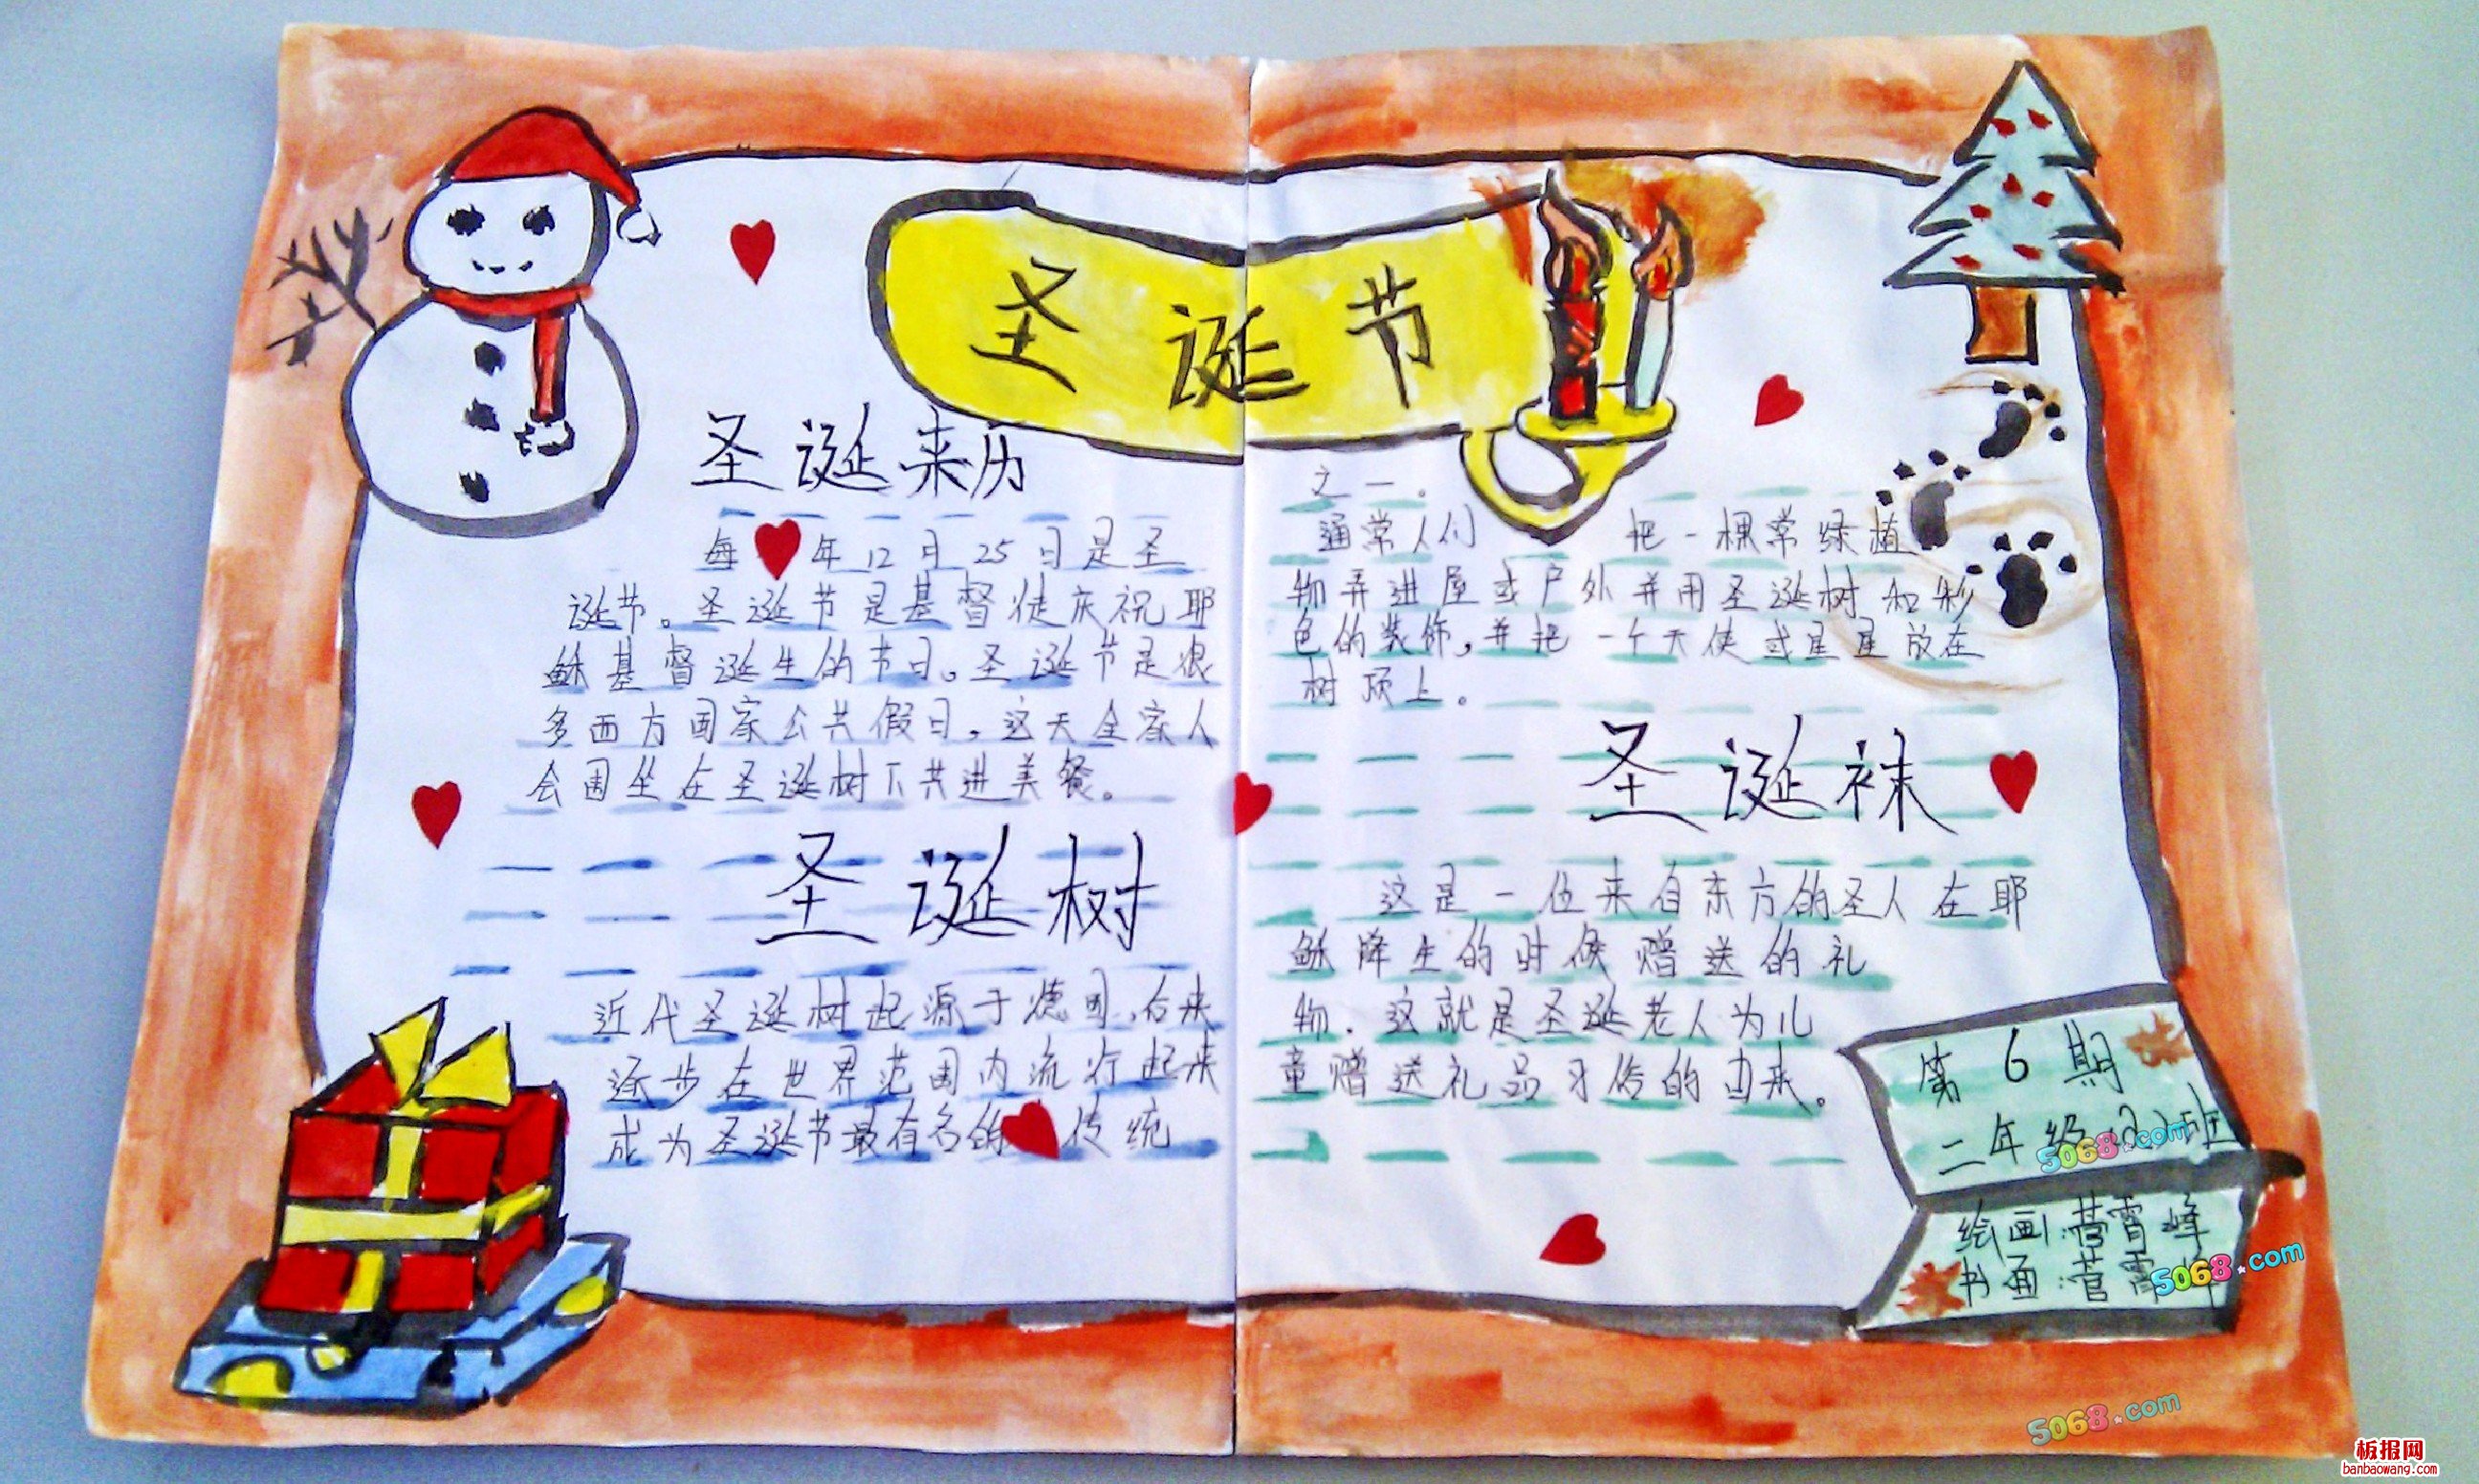 圣诞节
圣诞来历
每年12月25日是圣
诞节。圣诞节是基督徒庆祝耶
稣基督诞生的节日。圣诞节是很
多西方国家公共假日。这天全家人
会围坐在圣诞树下共进美餐。
圣诞树
近代圣诞树起源于德国,后来
逐步在世界范围内流行起来
成为圣诞节最有名的传统
之一。
通常人们把一棵常绿植
物弄进屋或户外并用圣诞树和彩
色的装饰,并把一个天使或星星放在
树顶上。
圣诞袜
这是一位来自东方的圣人在耶
稣降生的时候赠送的礼
物.这就是圣诞老人为儿
童赠送礼品习俗的由来。
第6期
二年级(2)班
绘画:菅霄峰
书画:菅霄峰
5068.com
5068.com
5068.com
板报网
banbaowang.com